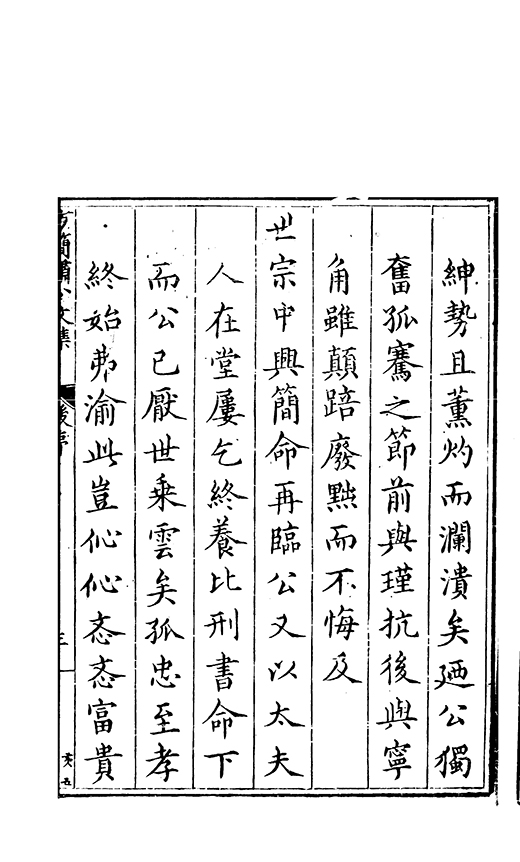 紳勢且薰灼而瀾潰矣廼公獨
奮孤騫之節前與瑾抗後與寧
角雖顛踣廢黜而不悔及
世宗中興簡命再臨公又以太夫
人在堂屢乞終養比刑書命下
而公已厭世乘雲矣孤忠至孝
終始弗渝此豈伈伈忞忞富貴
簡肅公文集
後序
三